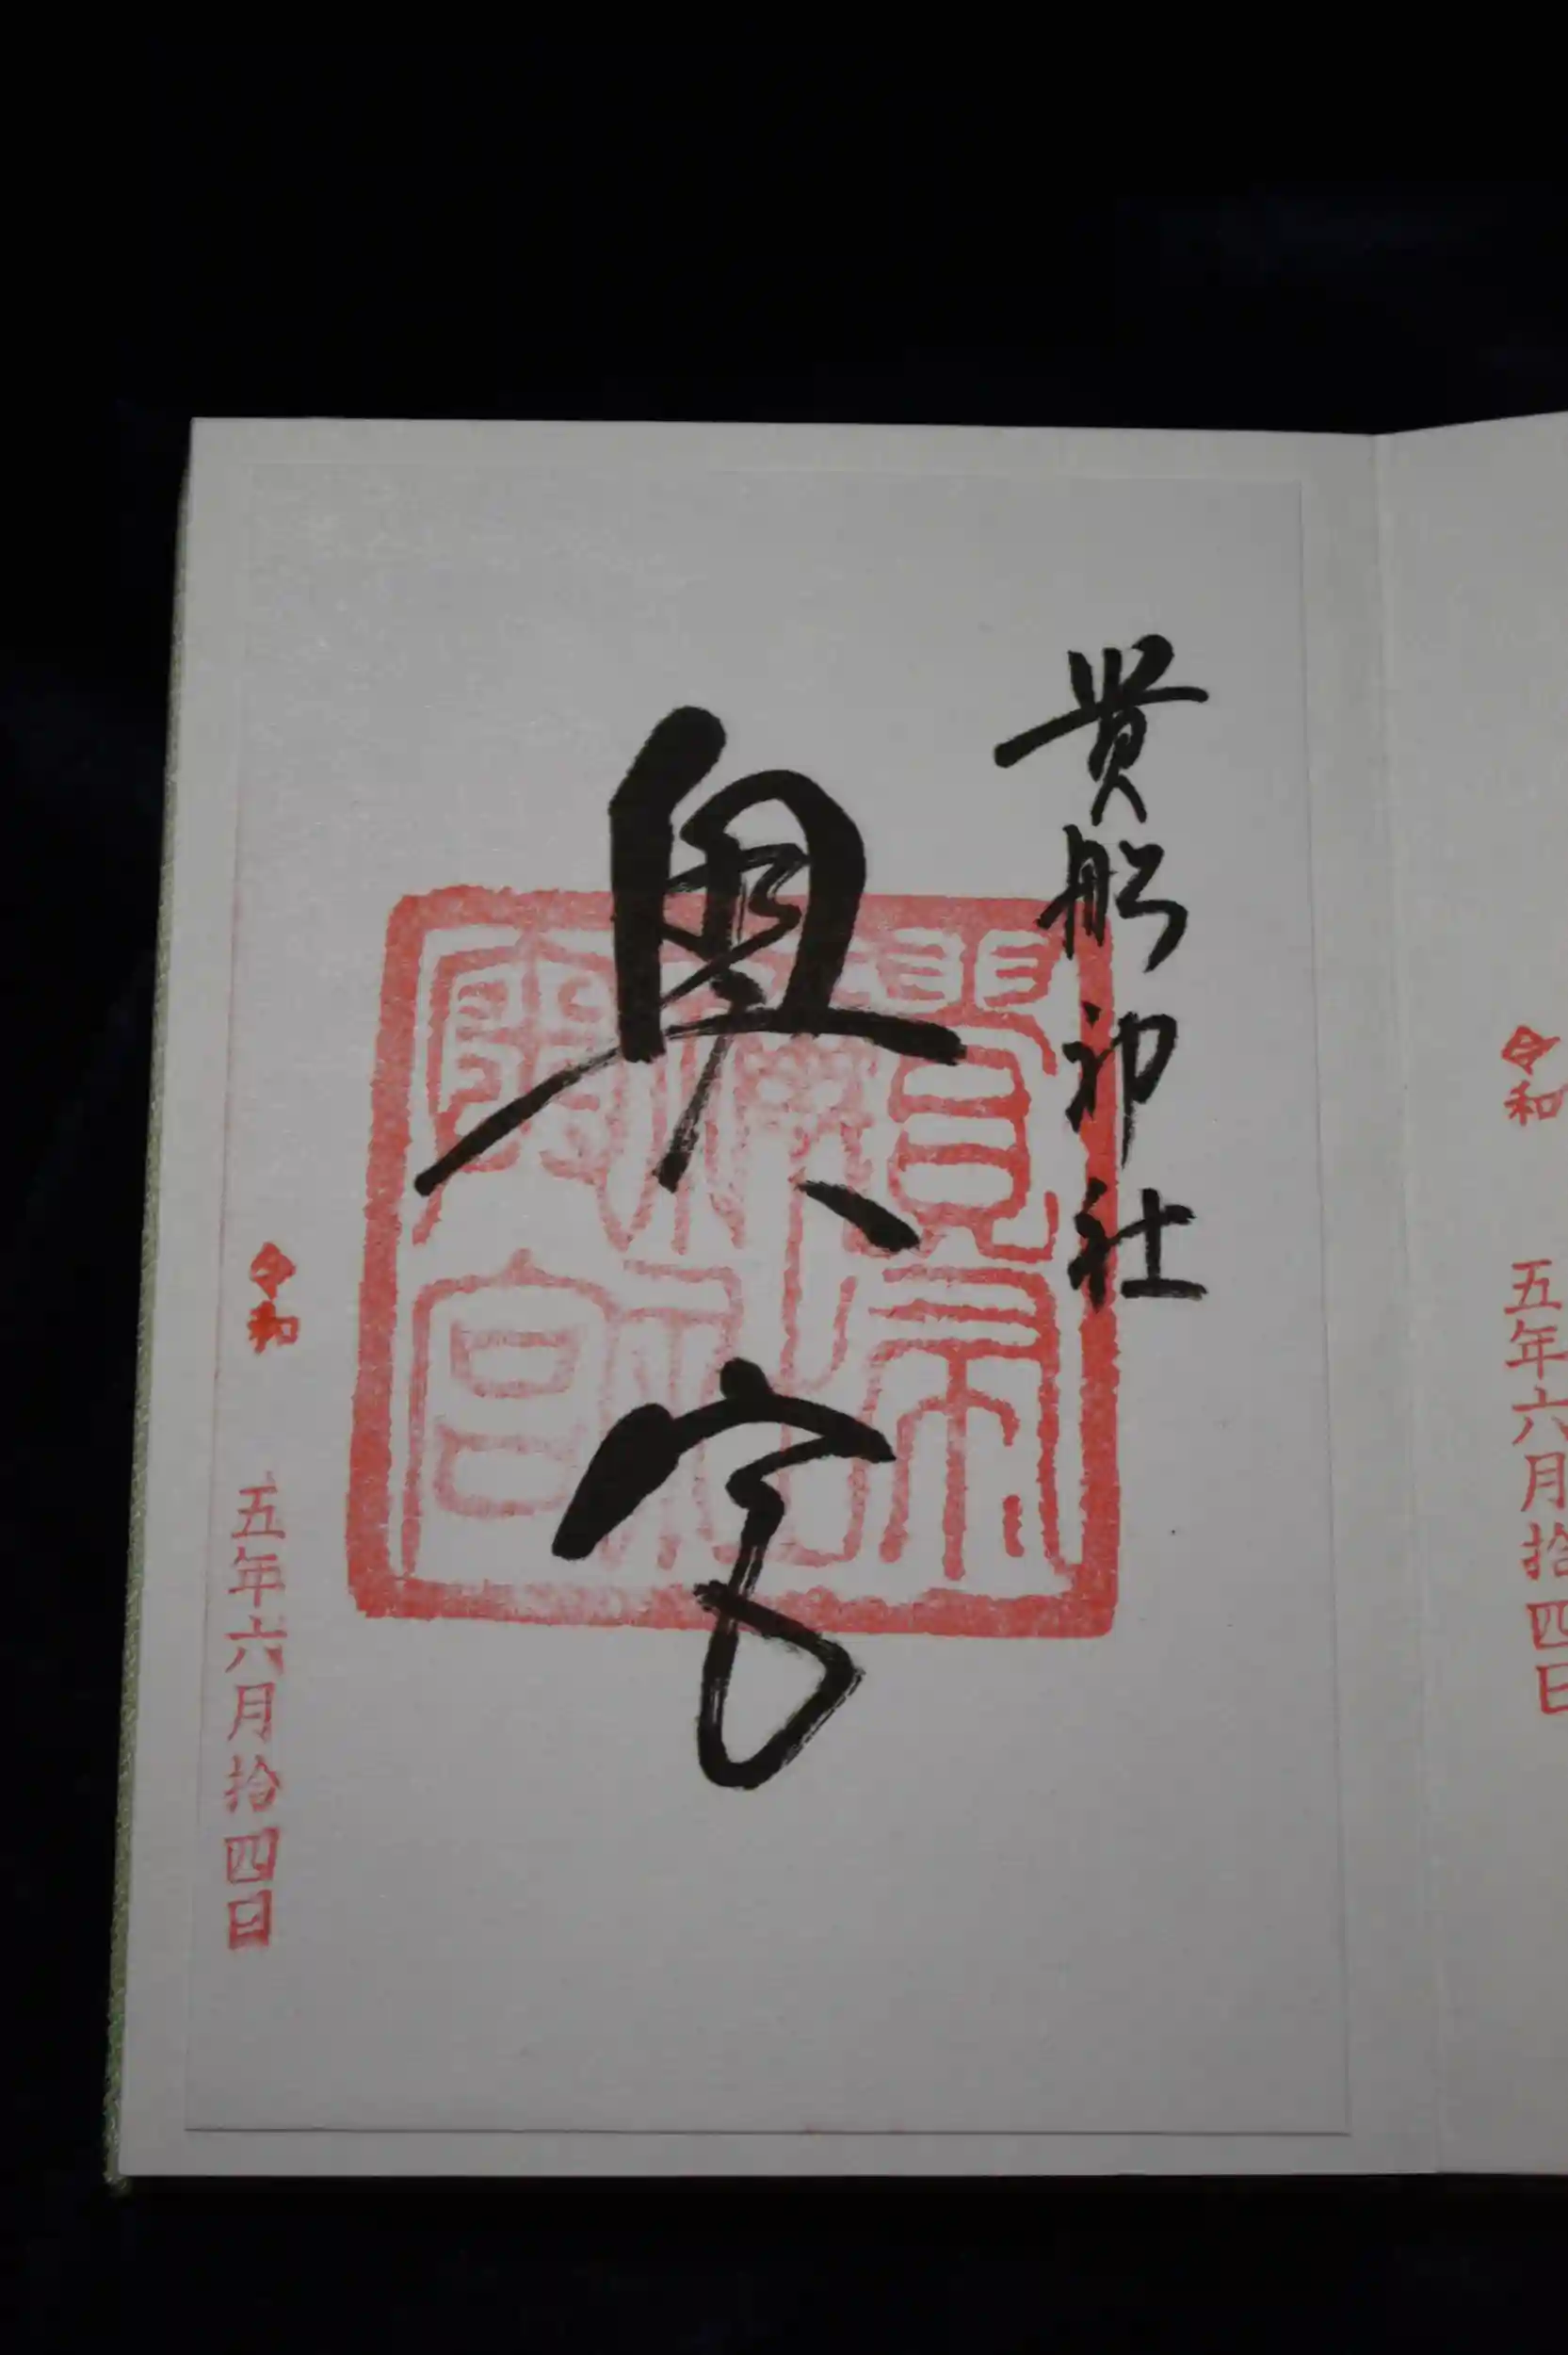 令和
五年六月拾四日
貴船神社
奥宮
令和
五年六月拾四日